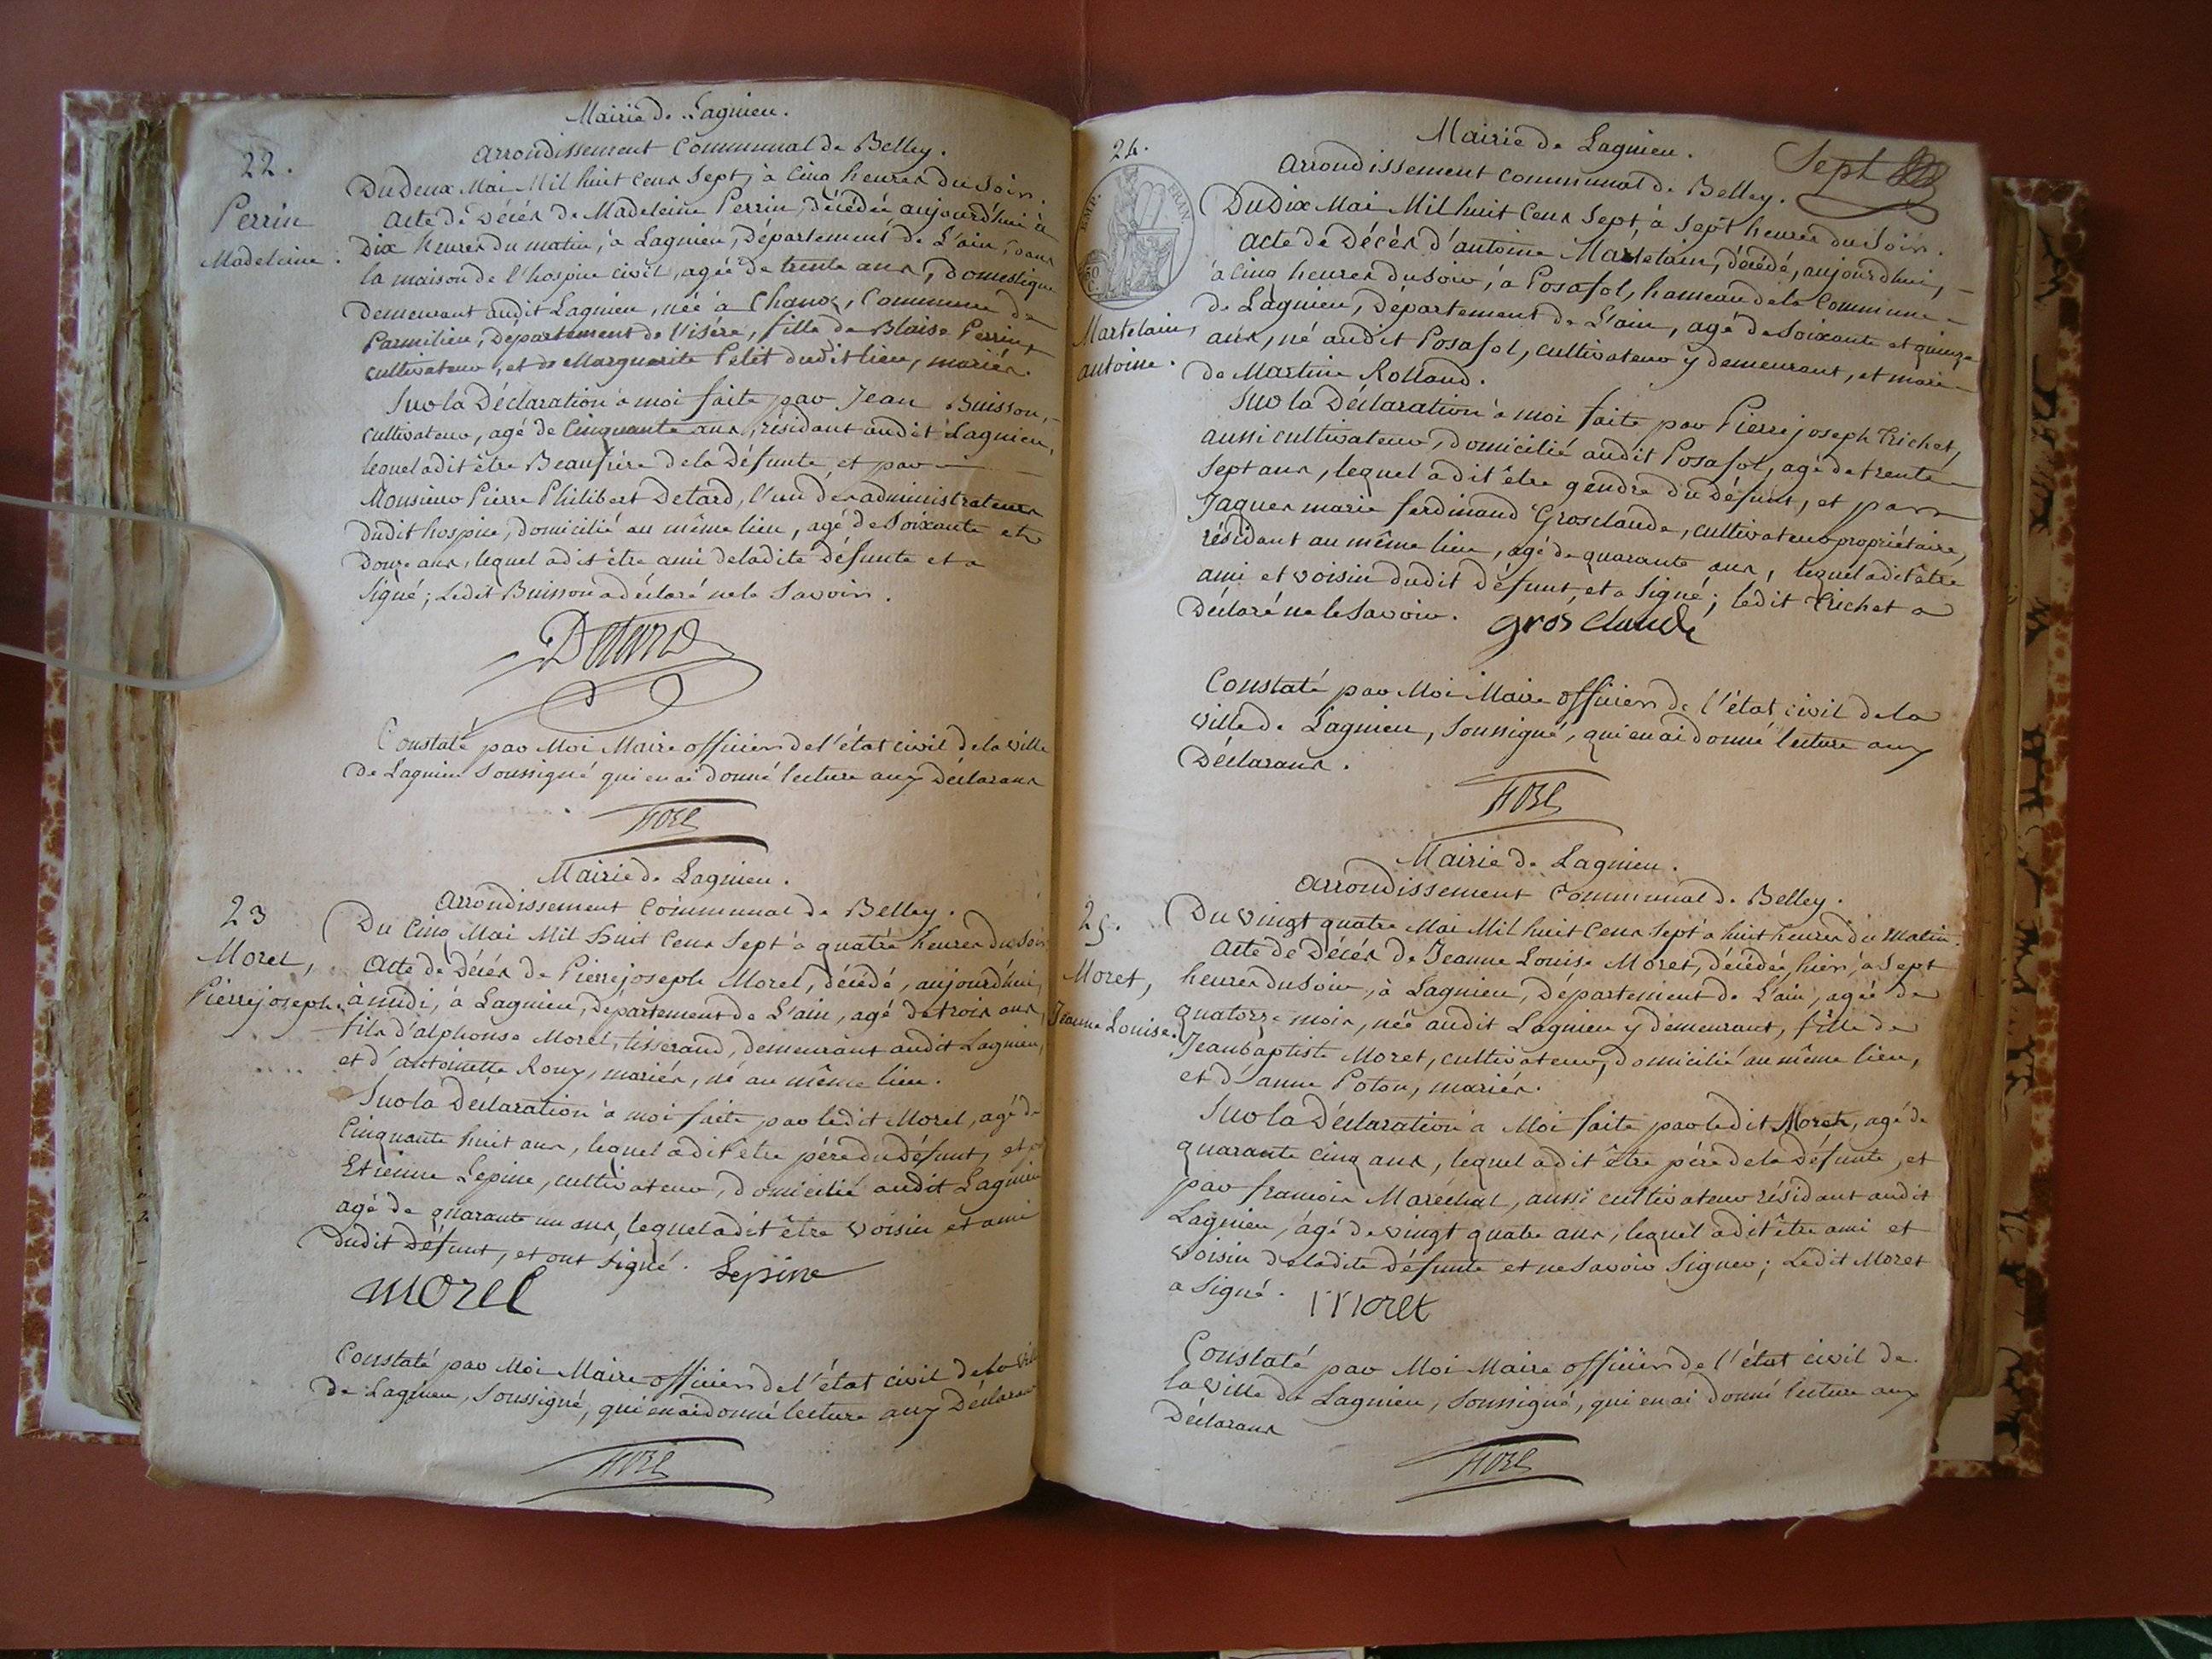 Mairie de Lagnieu.
arrondissement Communal de Belley.
22.
Perrin
Madeleine.
Du Deux Mai Mil huit Cens Sept, à Cinq heures du Soir.
Acte de Décès de Madeleine Perrin, décédée aujourd'hui à
Dix heures du matin, à Lagnieu, Département de L'ain, dans
la maison de l'hospice civil, agée de trente ans, domestique
Demeurant audit Lagnieu, née à Chanoz, Commune de
Parmilieu, Département de l'isère, fille de Blaise Perrin,
cultivateur, et de Marguerite Pelet dudit lieu, mariés.
Sur la Déclaration à moi faite par Jean Buisson,
cultivateur, agé de Cinquante ans, résidant audit Lagnieu,
lequel a dit être Beaufrère de la Défunte, et par
Monsieur Pierre Philibert Detard, l'un des administrateurs
dudit hospice, domicilié au même lieu, agé de Soixante et
Douze ans, lequel a dit être ami deladite Défunte et a
Signé; Ledit Buisson a déclaré ne le Savoir.
Detard
Constaté par Moi Maire officier de l'état civil de la Ville
de Lagnieu Soussigné qui en ai donné lecture aux Déclarans
Mairie de Lagnieu.
arrondissement Communal de Belley.
23
Morel,
Pierre joseph.
Du Cinq Mai Mil Huit Cens Sept à quatre heures du Soir
Acte de Décès de Pierre joseph Morel, décédé, aujourd'hui,
à midi, à Lagnieu, département de L'ain, agé de trois ans,
fils d'alphonse Morel, tisserand, demeurant audit Lagnieu,
et d'antoinette Roux, mariés, né au même lieu.
Sur la Déclaration à moi faite par ledit Morel, agé de
Cinquante huit ans, lequel a dit être père du Défunt, et
Etienne Lepine, cultivateur, domicilié audit Lagnieu
agé de quarante un ans, lequel a dit être Voisin et ami
Dudit Défunt, et ont Signé. Lepine
morel
Constaté par Moi Maire officier de l'état civil de la Ville
de Lagnieu, Soussigné, qui en ai donné lecture aux Déclarans
Sept
Mairie de Lagnieu.
arrondissement communal de Belley.
24.
EMP. FRAN.
Martelain,
antoine.
Du Dix Mai Mil huit Cens Sept, à Sept heures du Soir.
Acte de Décès d'antoine Martelain, décédé, aujourdhui,
à Cinq heures du Soir, à Posafol, hameau de la Commune
de Lagnieu, Département de L'ain, agé de Soixante et quinze
ans, né audit Posafol, cultivateur y demeurant, et marié
de Martine Rolland.
Sur la Déclaration à moi faite par Pierre joseph Trichet,
aussi cultivateur, domicilié audit Posafol, agé de trente
Sept ans, lequel a dit être gendre du Défunt, et par
Jaques marie ferdinand Grosclaude, cultivateur propriétaire,
résidant au même lieu, agé de quarante ans, lequel a dit être
ami et voisin dudit Défunt, et a Signé; ledit Trichet a
Déclaré ne le Savoir. grosclaude
Constaté par Moi Maire officier de l'état civil de la
Ville de Lagnieu, Soussigné, qui en ai donné lecture aux
Déclarans.
Mairie de Lagnieu.
arrondissement Communal de Belley.
25.
Moret,
Jeanne Louise.
Du Vingt quatre Mai Mil huit Cens Sept à huit heures du Matin.
Acte de Décès de Jeanne Louise Moret, décédée, hier, à Sept
heures du Soir, à Lagnieu, Département de L'ain, agée de
quatorze mois, née audit Lagnieu y demeurant, fille de
Jean baptiste Moret, cultivateur, domicilié au même lieu,
et d'anne Poton, mariés.
Sur la Déclaration à Moi faite par ledit Moret, agé de
quarante cinq ans, lequel a dit être père de la Défunte, et
par francois Maréchal, aussi cultivateur résidant audit
Lagnieu, agé de vingt quatre ans, lequel a dit être ami et
Voisin de ladite Défunte et ne Savoir Signer; Ledit Moret
a Signé. moret
Constaté par Moi Maire officier de l'état civil de
la Ville de Lagnieu, Soussigné, qui en ai donné lecture aux
Déclarans